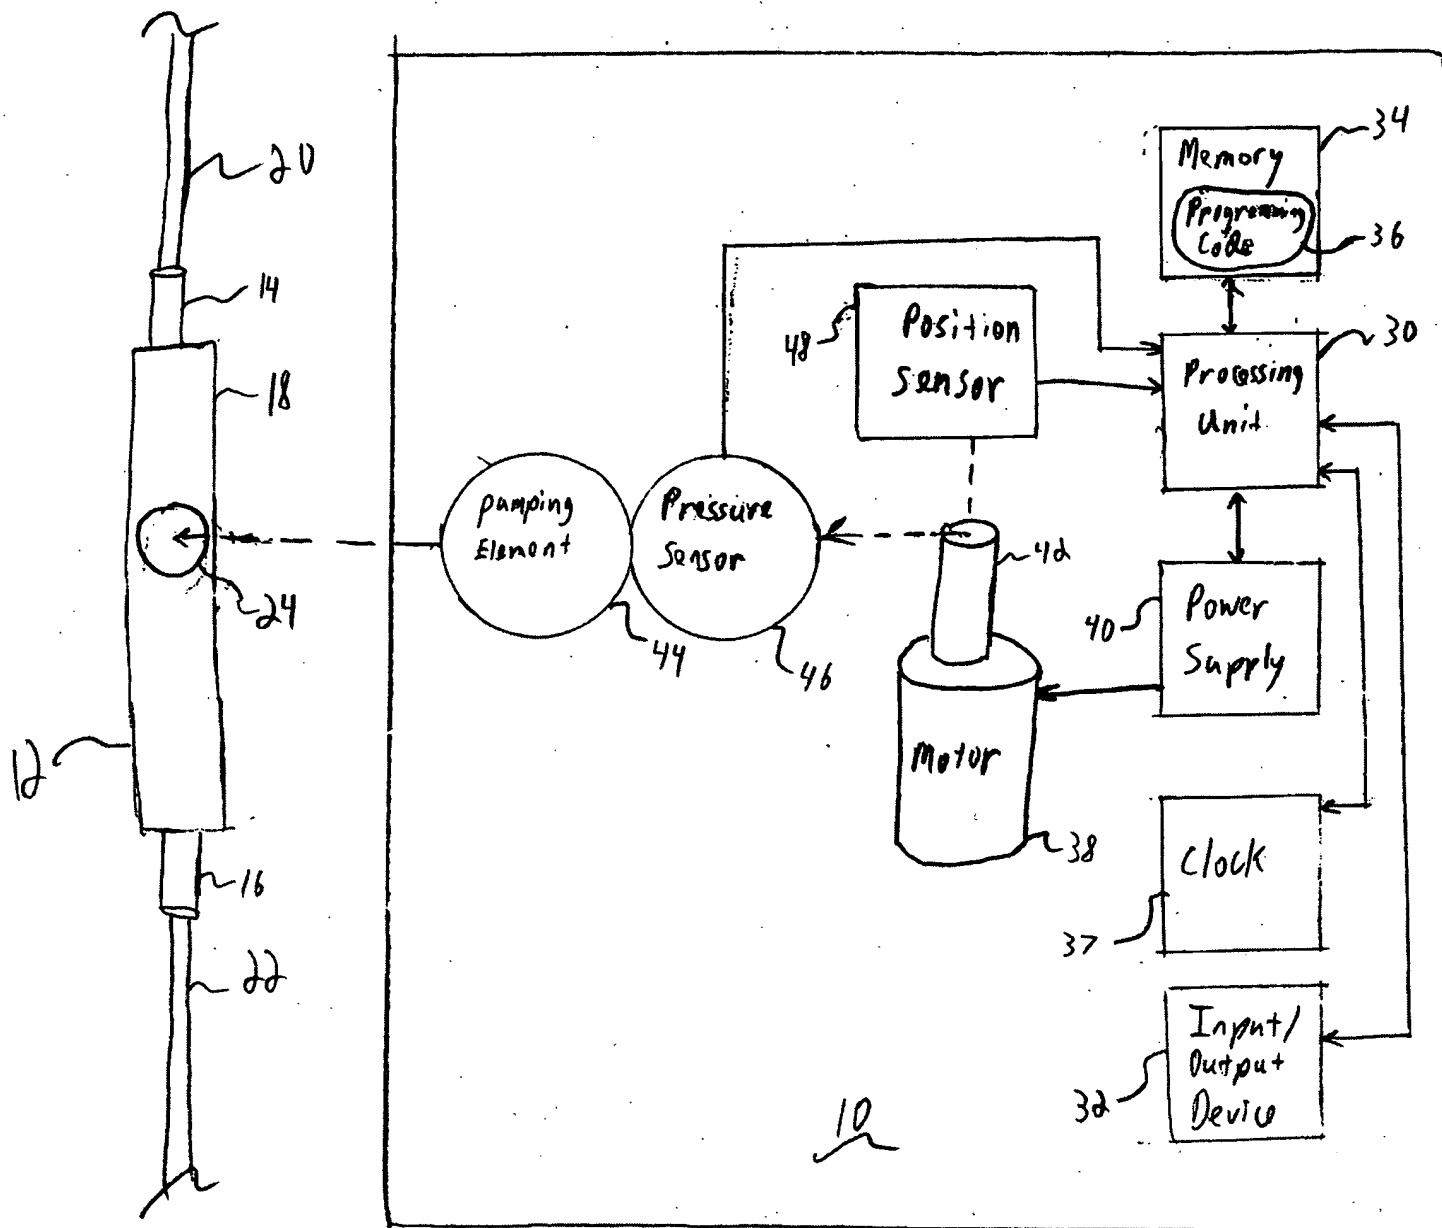 20
14
18
24
12
16
22
Memory
34
Programming
Code
36
Position
Sensor
48
Processing
Unit
30
Pumping
Element
44
Pressure
Sensor
46
42
Motor
38
Power
Supply
40
Clock
37
Input/
Output
Device
32
10